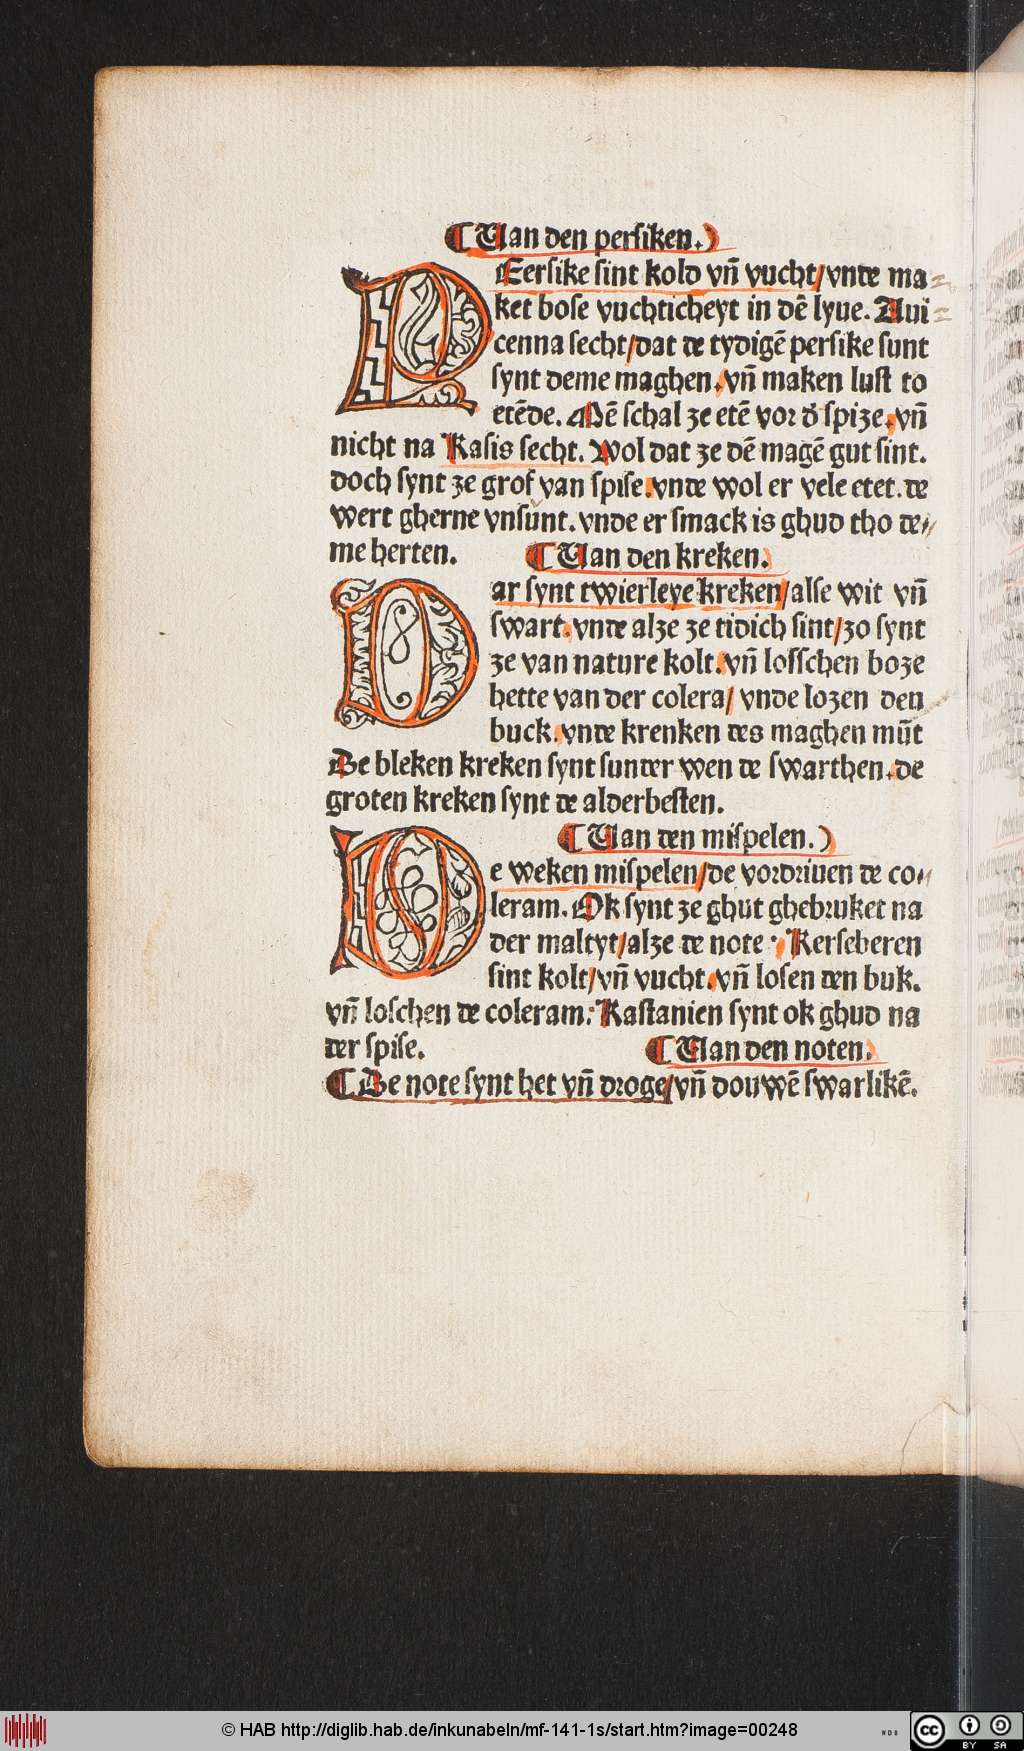 ¶ Uan den persiken.)
PEersike sint kold vn̄ vucht/vnde ma⸗
ket bose vuchticheyt in dē lyue. Aui⸗
cenna secht/dat de tydigē persike sunt
synt deme maghen.vn̄ maken lust to
etēde. Mē schal ze etē vor d̕ spize.vn̄
nicht na Rasis secht. Wol dat ze dē magē gut sint.
doch synt ze grof van spise.vnde wol er vele etet.de
wert gherne vnsunt.vnde er smack is ghud tho de⸗
me herten.
¶ Uan den kreken.
Dar synt twierleye kreken/alse wit vn̄
swart.vnde alze ze tidich sint/zo synt
ze van nature kolt.vn̄ losschen boze
hette van der colera/ vnde lozen den
buck.vnde krenken des maghen mūt
De bleken kreken synt sunder wen de swarthen.de
groten kreken synt de alderbesten.
¶ Uan den mispelen.)
De weken mispelen/de vordriuen de co⸗
leram. Ok synt ze ghut ghebruket na
der maltyt/alze de note. Kerseberen
sint kolt/vn̄ vucht.vn̄ losen den buk.
vn̄ loschen de coleram: Kastanien synt ok ghud na
der spise.
¶ Uan den noten.
¶ De note synt het vn̄ droge/vn̄ douwē swarlikē.
© HAB http://diglib.hab.de/inkunabeln/mf-141-1s/start.htm?image=00248
WDB
cc BY SA